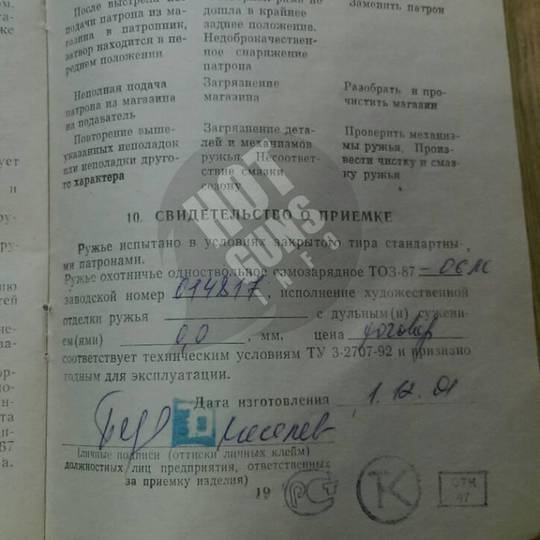 После выстрела не
подачи патрона из ма-
газина в патронник,
затвор находится в пе-
реднем положении
дошла в крайнее
заднее положение.
Недоброкачествен-
ное снаряжение
патрона
Заменить патрон
Неполная подача
патрона из магазина
на подаватель
Загрязнение
магазина
Разобрать и про-
чистить магазин
Повторение выше-
указанных неполадок
или неполадки друго-
го характера
Загрязнение дета-
лей и механизмов
ружья. Несоответ-
ствие смазки
сезону
Проверить механиз-
мы ружья. Произ-
вести чистку и смаз-
ку ружья
10. СВИДЕТЕЛЬСТВО О ПРИЕМКЕ
Ружье испытано в условиях закрытого тира стандартны-
ми патронами.
Ружье охотничье одноствольное самозарядное ТОЗ-87 – 06М
заводской номер 014817, исполнение художественной
отделки ружья с дульным(и) сужени-
ем(ями) 0,0 мм, цена договор
соответствует техническим условиям ТУ 3-2707-92 и признано
годным для эксплуатации.
Дата изготовления 1.12.01
(личные подписи (оттиски личных клейм)
должностных лиц предприятия, ответственных
за приемку изделия)
19
РСТ
ТК
ОТК
47
HOT
GUNS
INFO